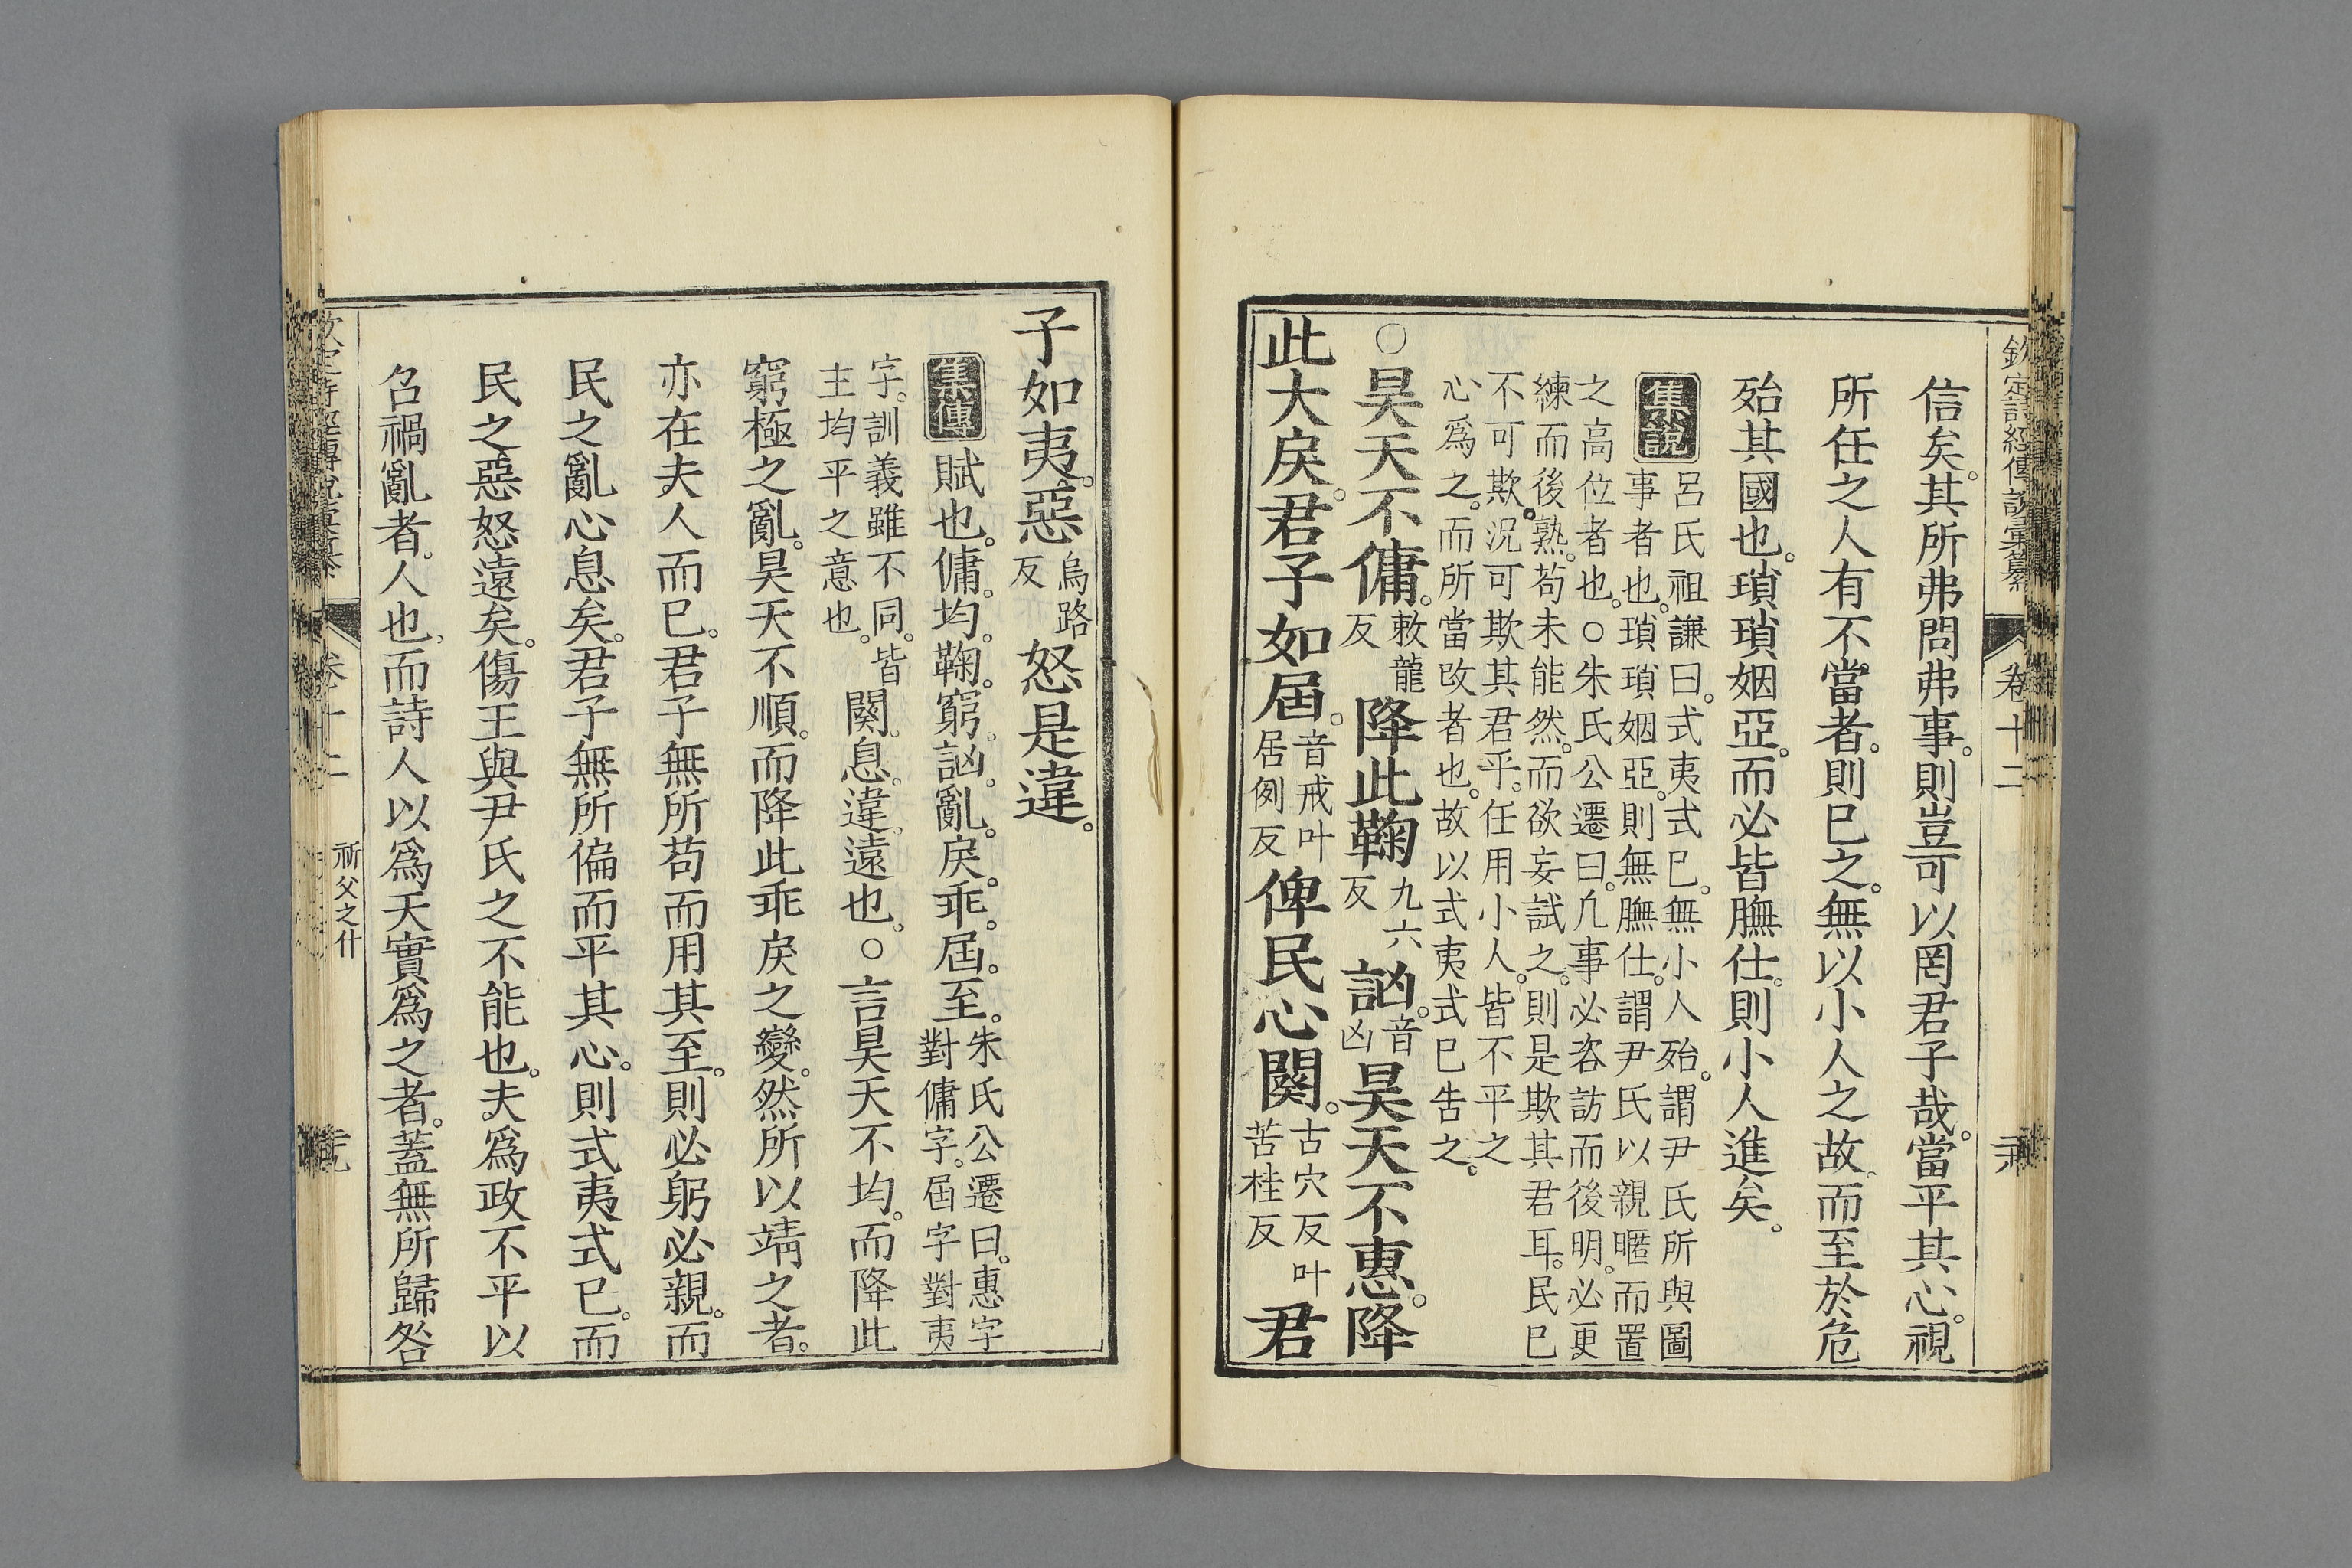 欽定詩經傳說彙纂 卷十二
信矣。其所弗問弗事。則豈可以罔君子哉。當平其心。視
所任之人有不當者。則已之。無以小人之故。而至於危
殆其國也。瑣瑣姻亞。而必皆膴仕。則小人進矣。
集說 呂氏祖謙曰。式夷式已。無小人殆。謂尹氏所與圖
事者也。瑣瑣姻亞。則無膴仕。謂尹氏以親暱而置
之高位者也。○朱氏公遷曰。凡事必咨訪而後明。必更
練而後熟。苟未能然。而欲妄試之。則是欺其君耳。民已
不可欺。况可欺其君乎。任用小人。皆不平之
心爲之。而所當改者也。故以式夷式已告之。
○昊天不傭。敕龍反降此鞠九六反訩。音凶昊天不惠。降
此大戾。君子如屆。音戒叶居例反俾民心闋。古穴反叶苦桂反君
子如夷。惡烏路反怒是違。
集傳 賦也。傭。均。鞠。窮。訩。亂。戾。乖。屆。至。朱氏公遷曰。惠字對傭字。屆字對夷
字。訓義雖不同。皆主均平之意也。闋。息。違。遠也。○言昊天不均。而降此
窮極之亂。昊天不順。而降此乖戾之變。然所以靖之者。
亦在夫人而已。君子無所苟而用其至。則必躬必親。而
民之亂心息矣。君子無所偏而平其心。則式夷式已。而
民之惡怒遠矣。傷王與尹氏之不能也。夫爲政不平以
召禍亂者。人也。而詩人以爲天實爲之者。蓋無所歸咎
卷十二 祈父之什